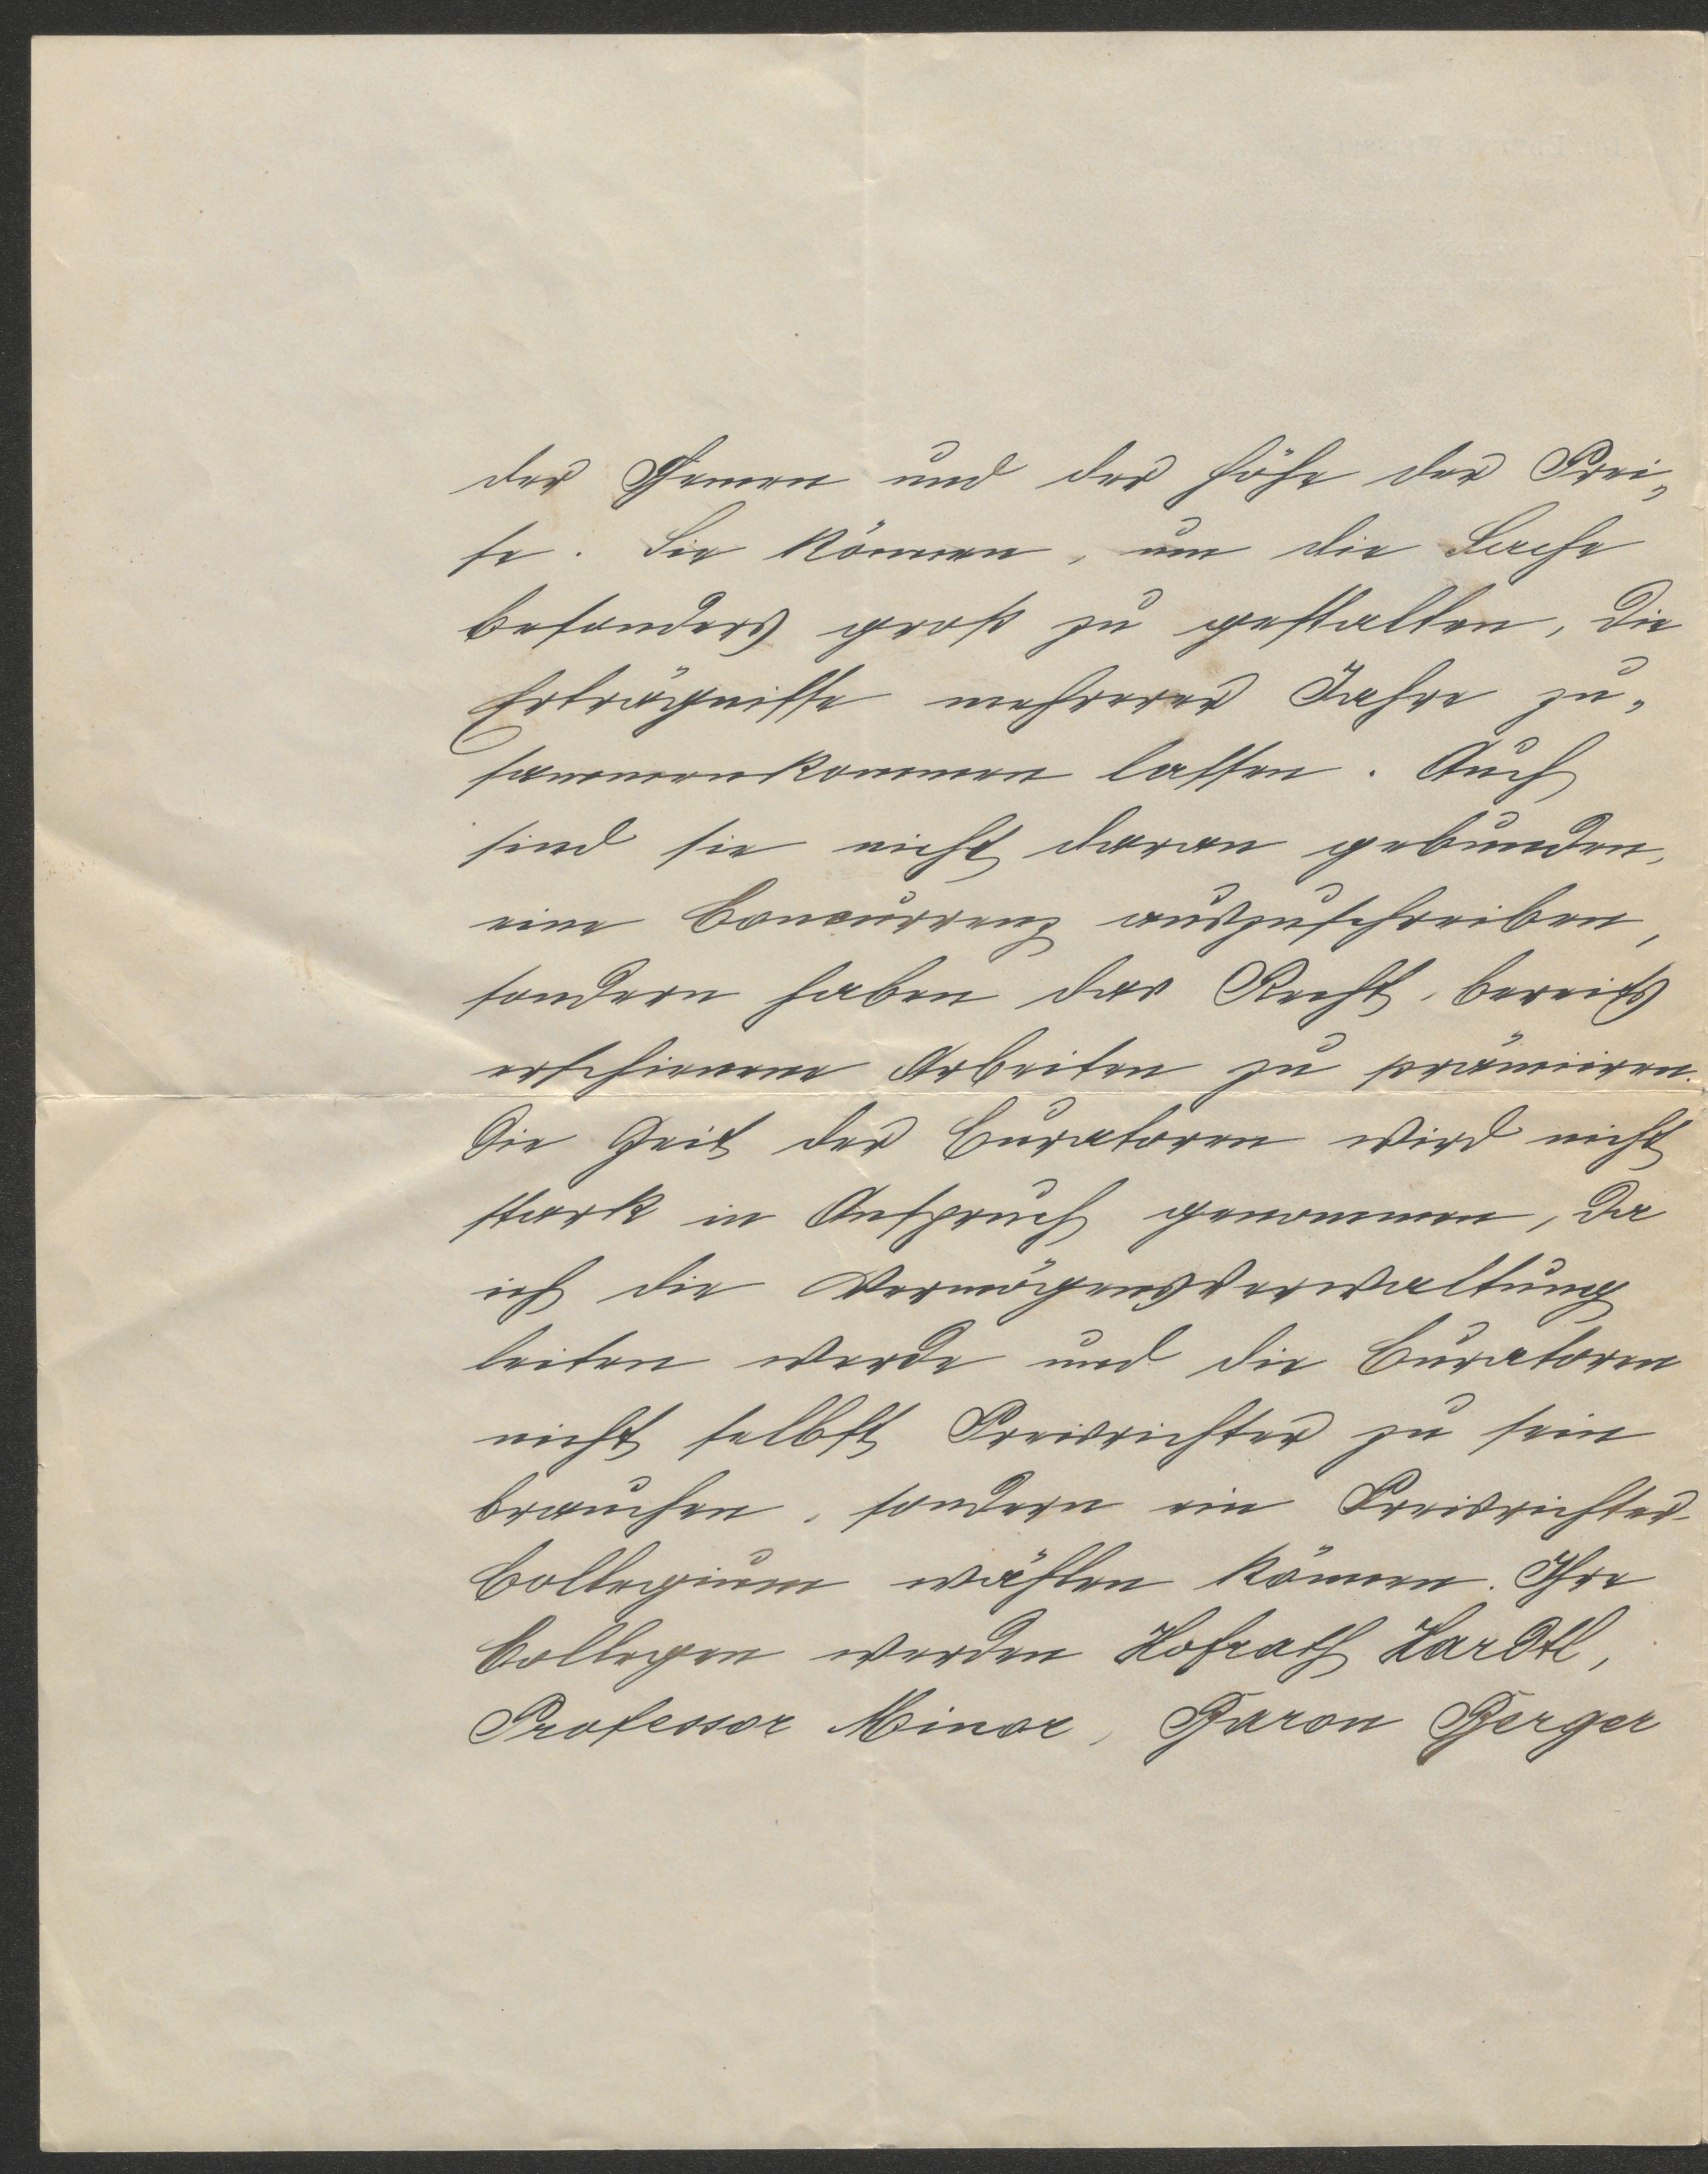 der Themen und der Höhe der Prei„
se. Sie können, um die Sache
besonders groß zu gestalten, die
Erträgnisse mehrerer Jahre zu„
sammenkommen lassen. Auch
sind sie nicht daran gebunden,
eine Concurrenz auszuschreiben,
sondern haben das Recht, bereits
erschienene Arbeiten zu prämiiren.
Die Zeit der Curatoren wird nicht
stark in Anspruch genommen, da
ich die Vermögensverwaltung
leiten werde und die Curatoren
nicht selbst Preisrichter zu sein
brauchen, sondern ein Preisrichter-
Collegium wählen können. Ihre
Collegen werden Hofrath Hardtl,
Professor Minor, Baron Berger